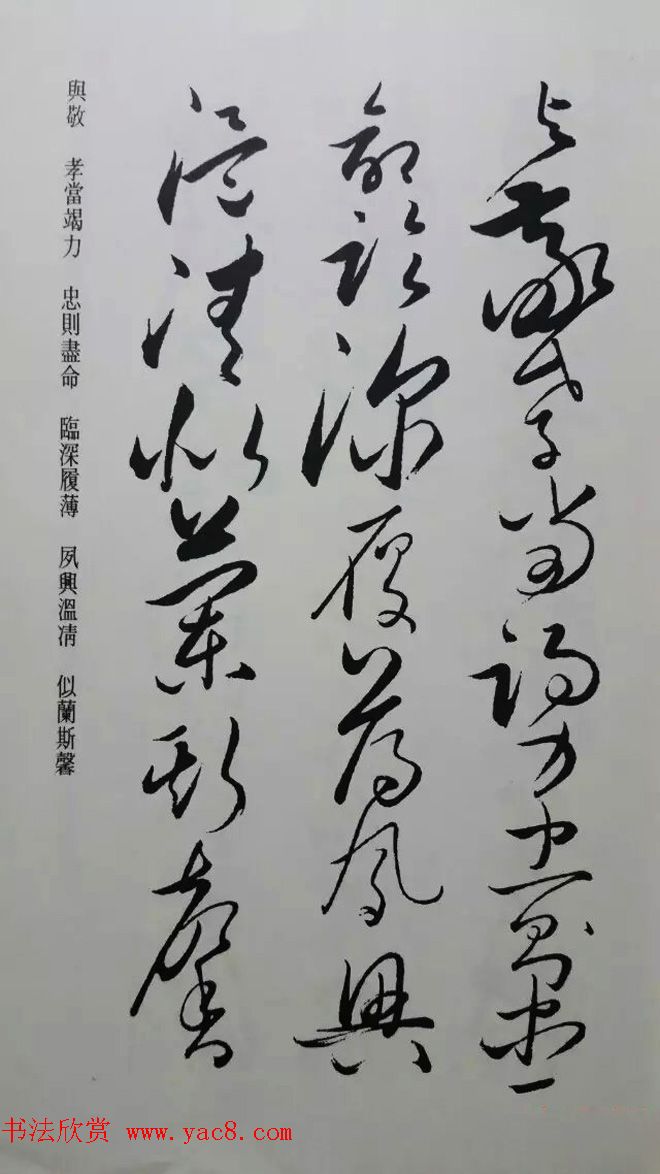 與敬孝當竭力忠則盡
命臨深履薄夙興
溫凊似蘭斯馨
與敬　孝當竭力　忠則盡命　臨深履薄　夙興溫凊　似蘭斯馨
书法欣赏 www.yac8.com